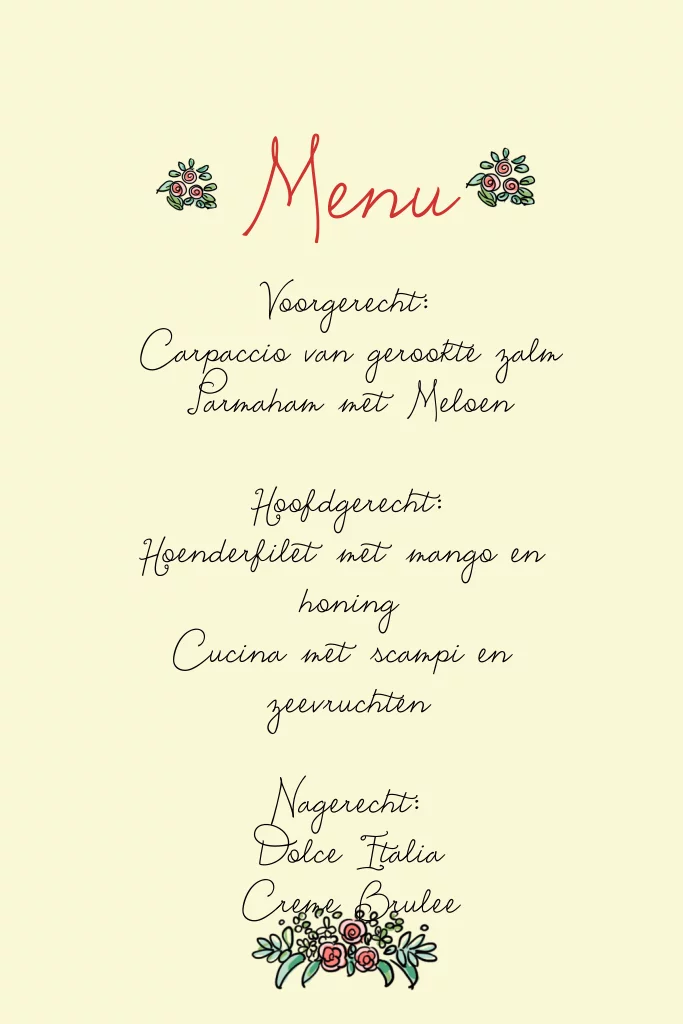 Menu
Voorgerecht:
Carpaccio van gerookte zalm
Parmaham met Meloen
Hoofdgerecht:
Hoenderfilet met mango en
honing
Cucina met scampi en
zeevruchten
Nagerecht:
Dolce Italia
Creme Brulee